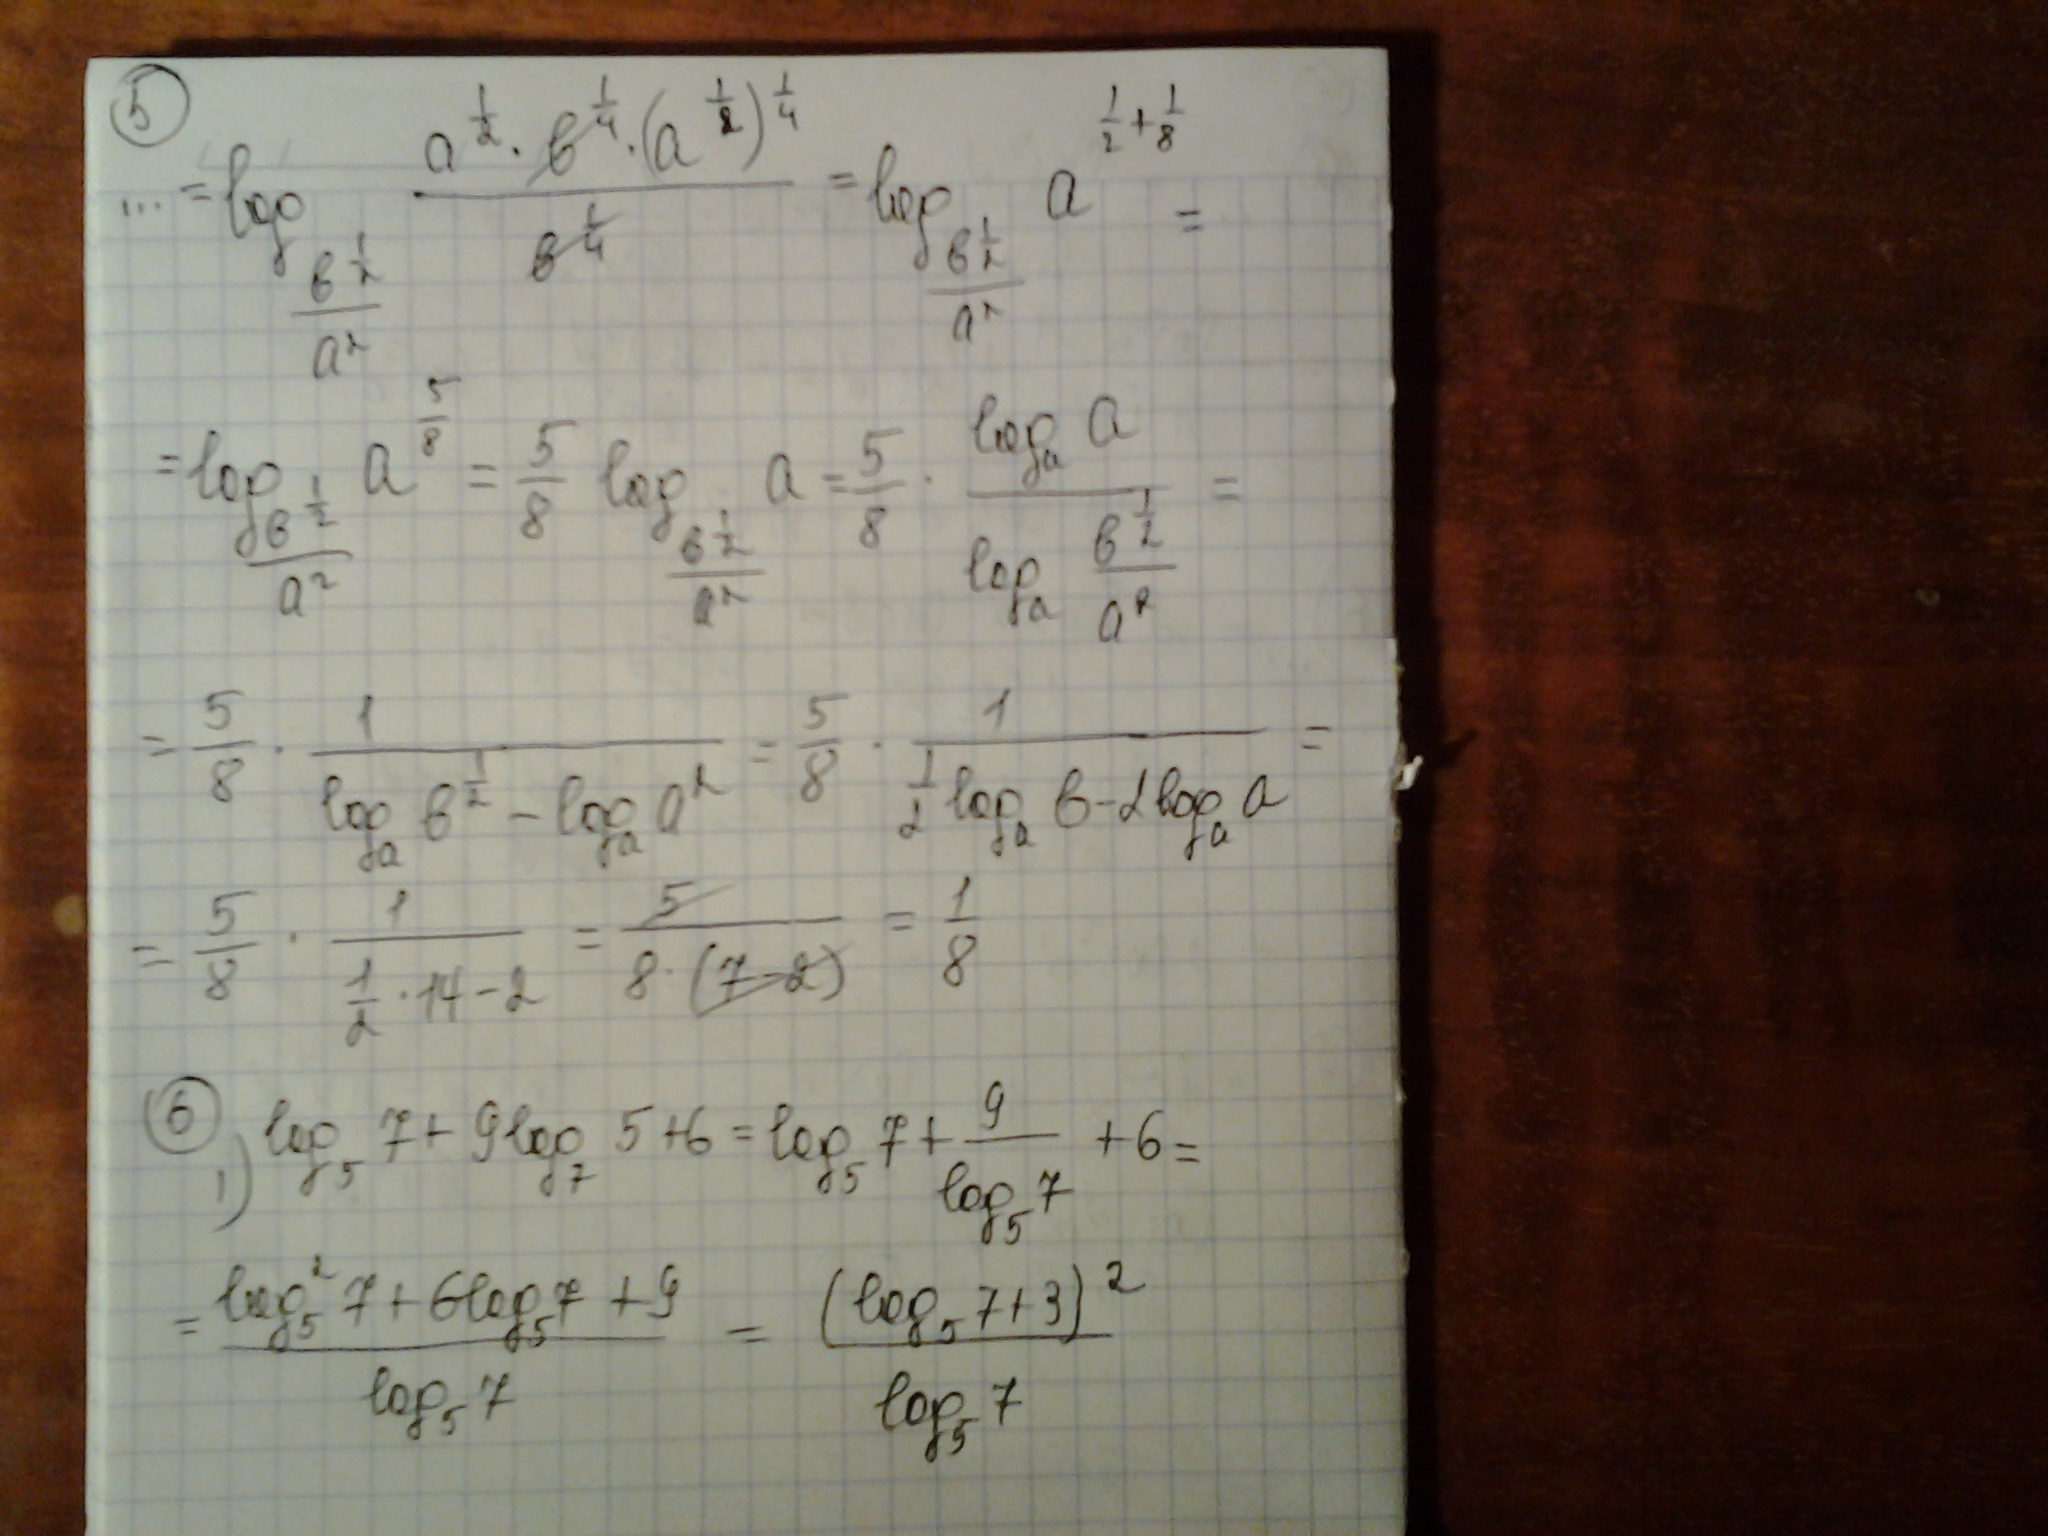 5
... = log_{в^{1/2}/a^2} (a^{1/2} · в^{1/4} · (a^{1/2})^{1/4}) / в^{1/4} = log_{в^{1/2}/a^2} a^{1/2+1/8} =
= log_{в^{1/2}/a^2} a^{5/8} = 5/8 log_{в^{1/2}/a^2} a = 5/8 · (log_a a) / (log_a в^{1/2}/a^2) =
= 5/8 · 1 / (log_a в^{1/2} - log_a a^2) = 5/8 · 1 / (1/2 log_a в - 2 log_a a) =
= 5/8 · 1 / (1/2 · 14 - 2) = 5 / (8 · (7 - 2)) = 1/8
6
1) log_5 7 + 9 log_7 5 + 6 = log_5 7 + 9 / (log_5 7) + 6 =
= (log_5^2 7 + 6 log_5 7 + 9) / (log_5 7) = (log_5 7 + 3)^2 / (log_5 7)